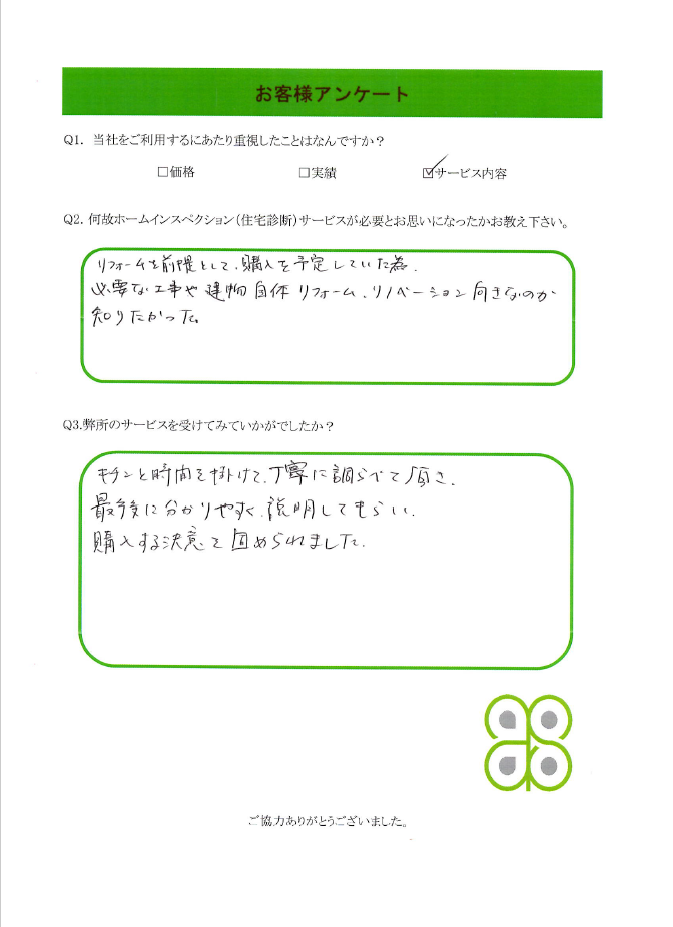 お客様アンケート
Q1. 当社をご利用するにあたり重視したことはなんですか？
□価格 □実績 ☑サービス内容
Q2. 何故ホームインスペクション（住宅診断）サービスが必要とお思いになったかお教え下さい。
リフォームを前提として、購入を予定していた為.
必要な工事や建物自体リフォーム、リノベーション向きなのか
知りたかった。
Q3.弊所のサービスを受けてみていかがでしたか？
キチンと時間を掛けて、丁寧に調らべて頂き、
最後に分かりやすく、説明してもらい、
購入する決意を固められました.
ご協力ありがとうございました。